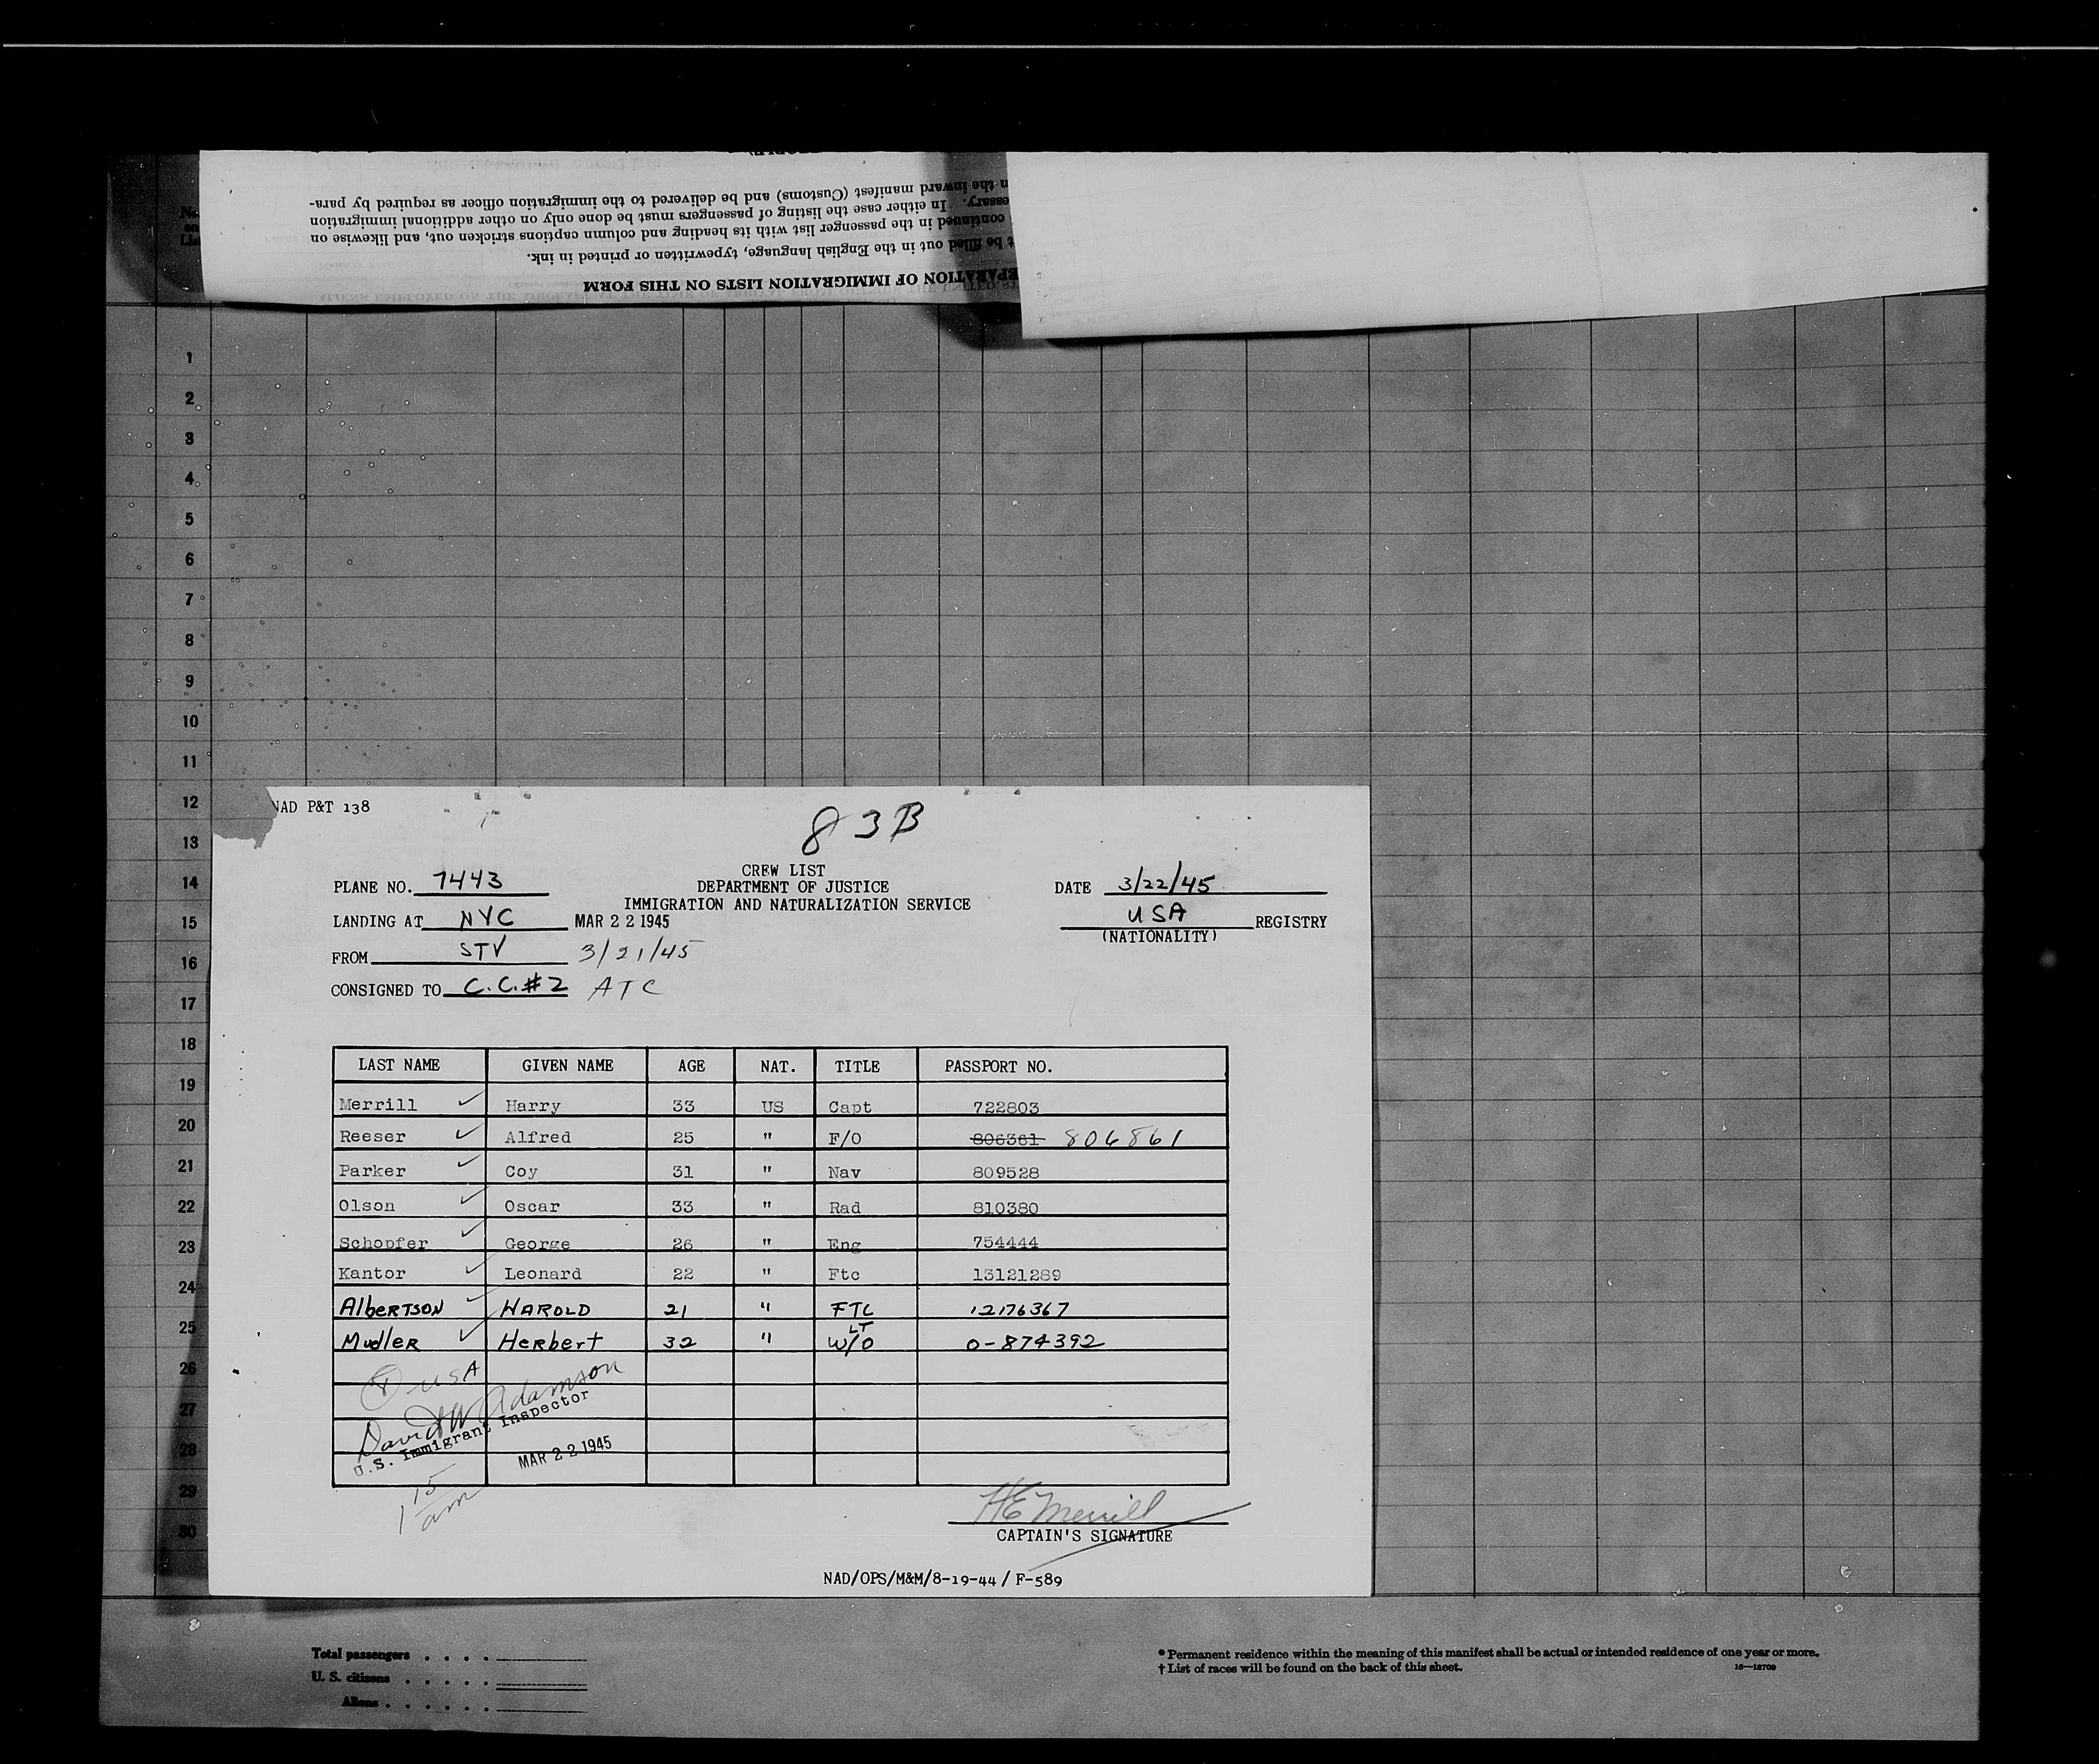 EPARATION OF IMMIGRATION LISTS ON THIS FORM
t be filled out in the English language, typewritten or printed in ink.
continued in the passenger list with its heading and column captions stricken out, and likewise on
essary. In either case the listing of passengers must be done only on other additional immigration
n the inward manifest (Customs) and be delivered to the immigration officer as required by para-
1
2
3
4
5
6
7
8
9
10
11
12
13
14
15
16
17
18
19
20
21
22
23
24
25
26
27
28
29
30
NAD P&T 138
83B
CREW LIST
DEPARTMENT OF JUSTICE
IMMIGRATION AND NATURALIZATION SERVICE
PLANE NO. 7443
DATE 3/22/45
LANDING AT NYC MAR 22 1945
USA REGISTRY
(NATIONALITY)
FROM STV 3/21/45
CONSIGNED TO C.C.#2 ATC
LAST NAME GIVEN NAME AGE NAT. TITLE PASSPORT NO.
Merrill ✓ Harry 33 US Capt 722803
Reeser ✓ Alfred 25 " F/O 806361 806861
Parker ✓ Coy 31 " Nav 809528
Olson ✓ Oscar 33 " Rad 810380
Schopfer ✓ George 26 " Eng 754444
Kantor ✓ Leonard 22 " Ftc 13121289
AlbERTSON ✓ HAROLD 21 " FTC 12176367
MudlER ✓ HERbERt 32 " LT W/O 0-874392
8 USA
David W Adamson
U.S. Immigrant Inspector
MAR 22 1945
1 15 am
HE Merrill
CAPTAIN'S SIGNATURE
NAD/OPS/M&M/8-19-44 / F-589
Total passengers . . . .
U. S. citizens . . . . .
Aliens . . . . . .
* Permanent residence within the meaning of this manifest shall be actual or intended residence of one year or more.
† List of races will be found on the back of this sheet.
16—18709